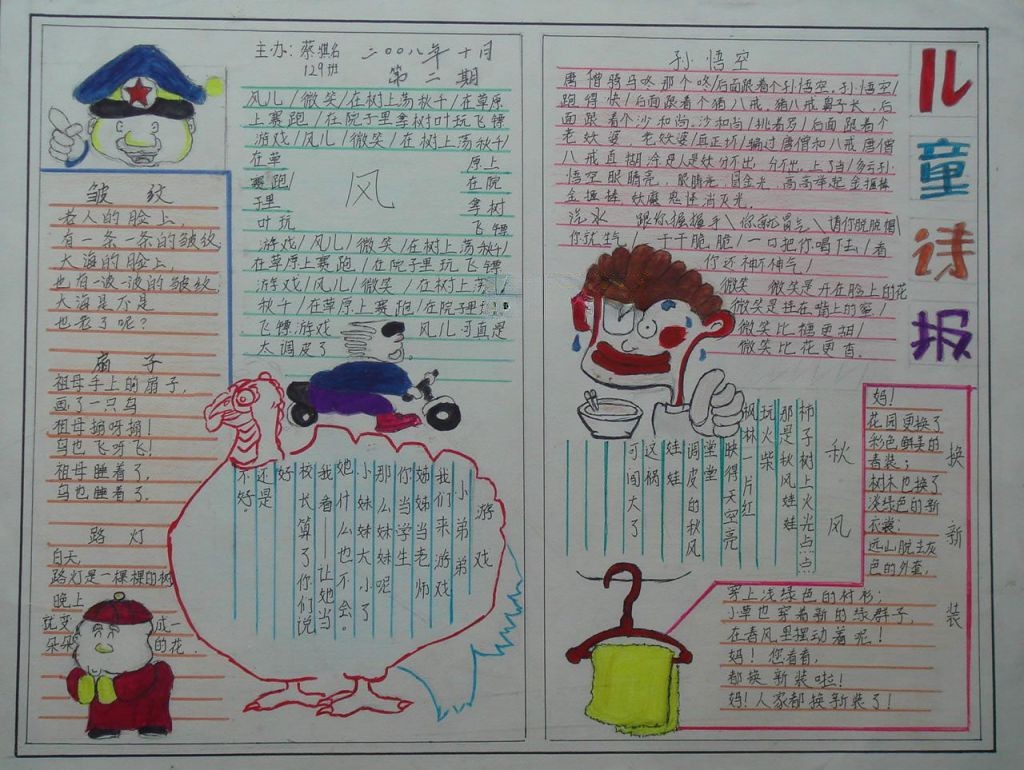 主办:蔡骐名 二〇〇八年十月
129班 第二期
风儿/微笑/在树上荡秋千/在草原
上赛跑/在院子里拿树叶玩飞镖
游戏/风儿/微笑/在树上荡秋千/
在草 原上
赛跑/ 在院
子里 拿树
叶玩 飞镖
风
游戏/风儿/微笑/在树上荡秋千/
在草原上赛跑/在院子里玩飞镖
游戏/风儿/微笑/在树上荡
秋千/在草原上赛跑/在院子里
飞镖游戏 风儿可真是
太调皮了
皱纹
老人的脸上,
有一条一条的皱纹
大海的脸上,
也有一波一波的皱纹
大海是不是
也老了呢?
扇子
祖母手上的扇子,
画了一只鸟
祖母捐呀捐!
鸟也飞呀飞!
祖母睡着了,
鸟也睡着了.
路灯
白天,
路灯是一棵棵的树
晚上
就变 成一
朵朵 的花.
游戏
小弟弟
我们来游戏
姊姊当老师
你当学生
那么妹妹呢
小妹妹太小了
她什么也不会。
我看——让她当
校长算了你们说
好
还是
不好?
儿童诗报
孙悟空
唐僧骑马咚那个咚/后面跟着个孙悟空.孙悟空/
跑得快/后面跟着个猪八戒.猪八戒鼻子长,后
面跟着个沙和尚.沙和尚/挑着箩/后面跟着个
老妖婆,老妖婆/真正坏/骗过唐僧和八戒唐僧
八戒真糊涂是人是妖分不出,分不出,上了当/多亏孙
悟空眼睛亮,眼睛光冒金光,高高举起金箍棒
金箍棒,妖魔鬼怪消灭光.
汽水 跟你握握手\你就冒气\请你脱脱帽
你就生气/干干脆脆/一口把你喝下去/看
你还神不神气/
微笑 微笑是开在脸上的花
微笑是挂在嘴上的蜜/
微笑比糖更甜/
微笑比花更香.
秋风
柿子树上火光点点
那是秋风娃娃
玩火柴
枫林一片红
映得天空亮
堂堂
调皮的秋风
娃娃
这祸
可闯大了
换新装
妈!
花园更换了
彩色鲜美的
春装;
树木也换了
淡绿色的新
衣裳;
远山脱去灰
色的外套,
穿上浅绿色的衬衫;
小草也穿着新的绿群子,
在春风里摆动着呢!
妈!您看看,
都换新装啦!
妈!人家都换新装了!